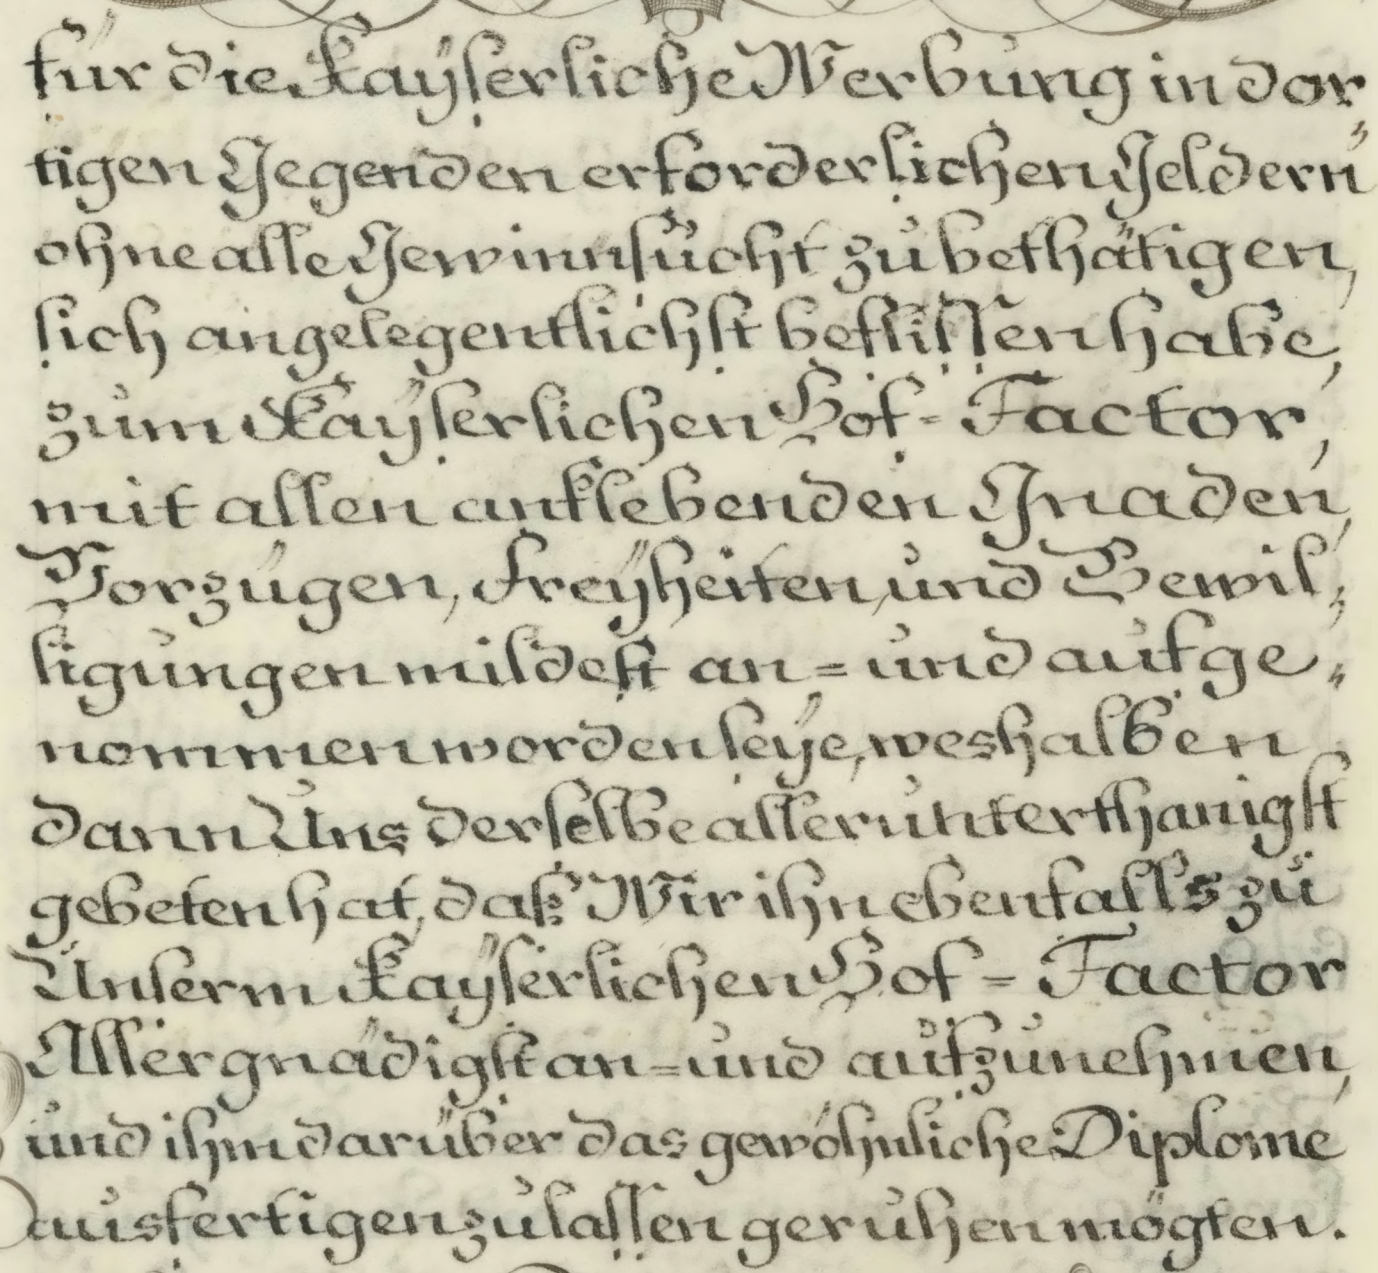 für die Kayserliche Werbung in dor
tigen Gegenden erforderlichen Geldern
ohne alle Gewinnsucht zu bethätigen,
sich angelegentlichst beflissen habe,
zum Kayserlichen Hof-Factor,
mit allen anklebenden Gnaden,
Vorzügen, Freyheiten, und Bewil,,
ligungen mildest an- und aufge,,
nommen worden seye, weshalben
dann Uns derselbe allerunterthänigst
gebeten hat, daß Wir ihn ebenfalls zu
Unserm Kayserlichen Hof-Factor
Allergnädigst an- und aufzunehmen,
und ihm darüber das gewöhnliche Diplome
ausfertigen zu lassen geruhen mögten.